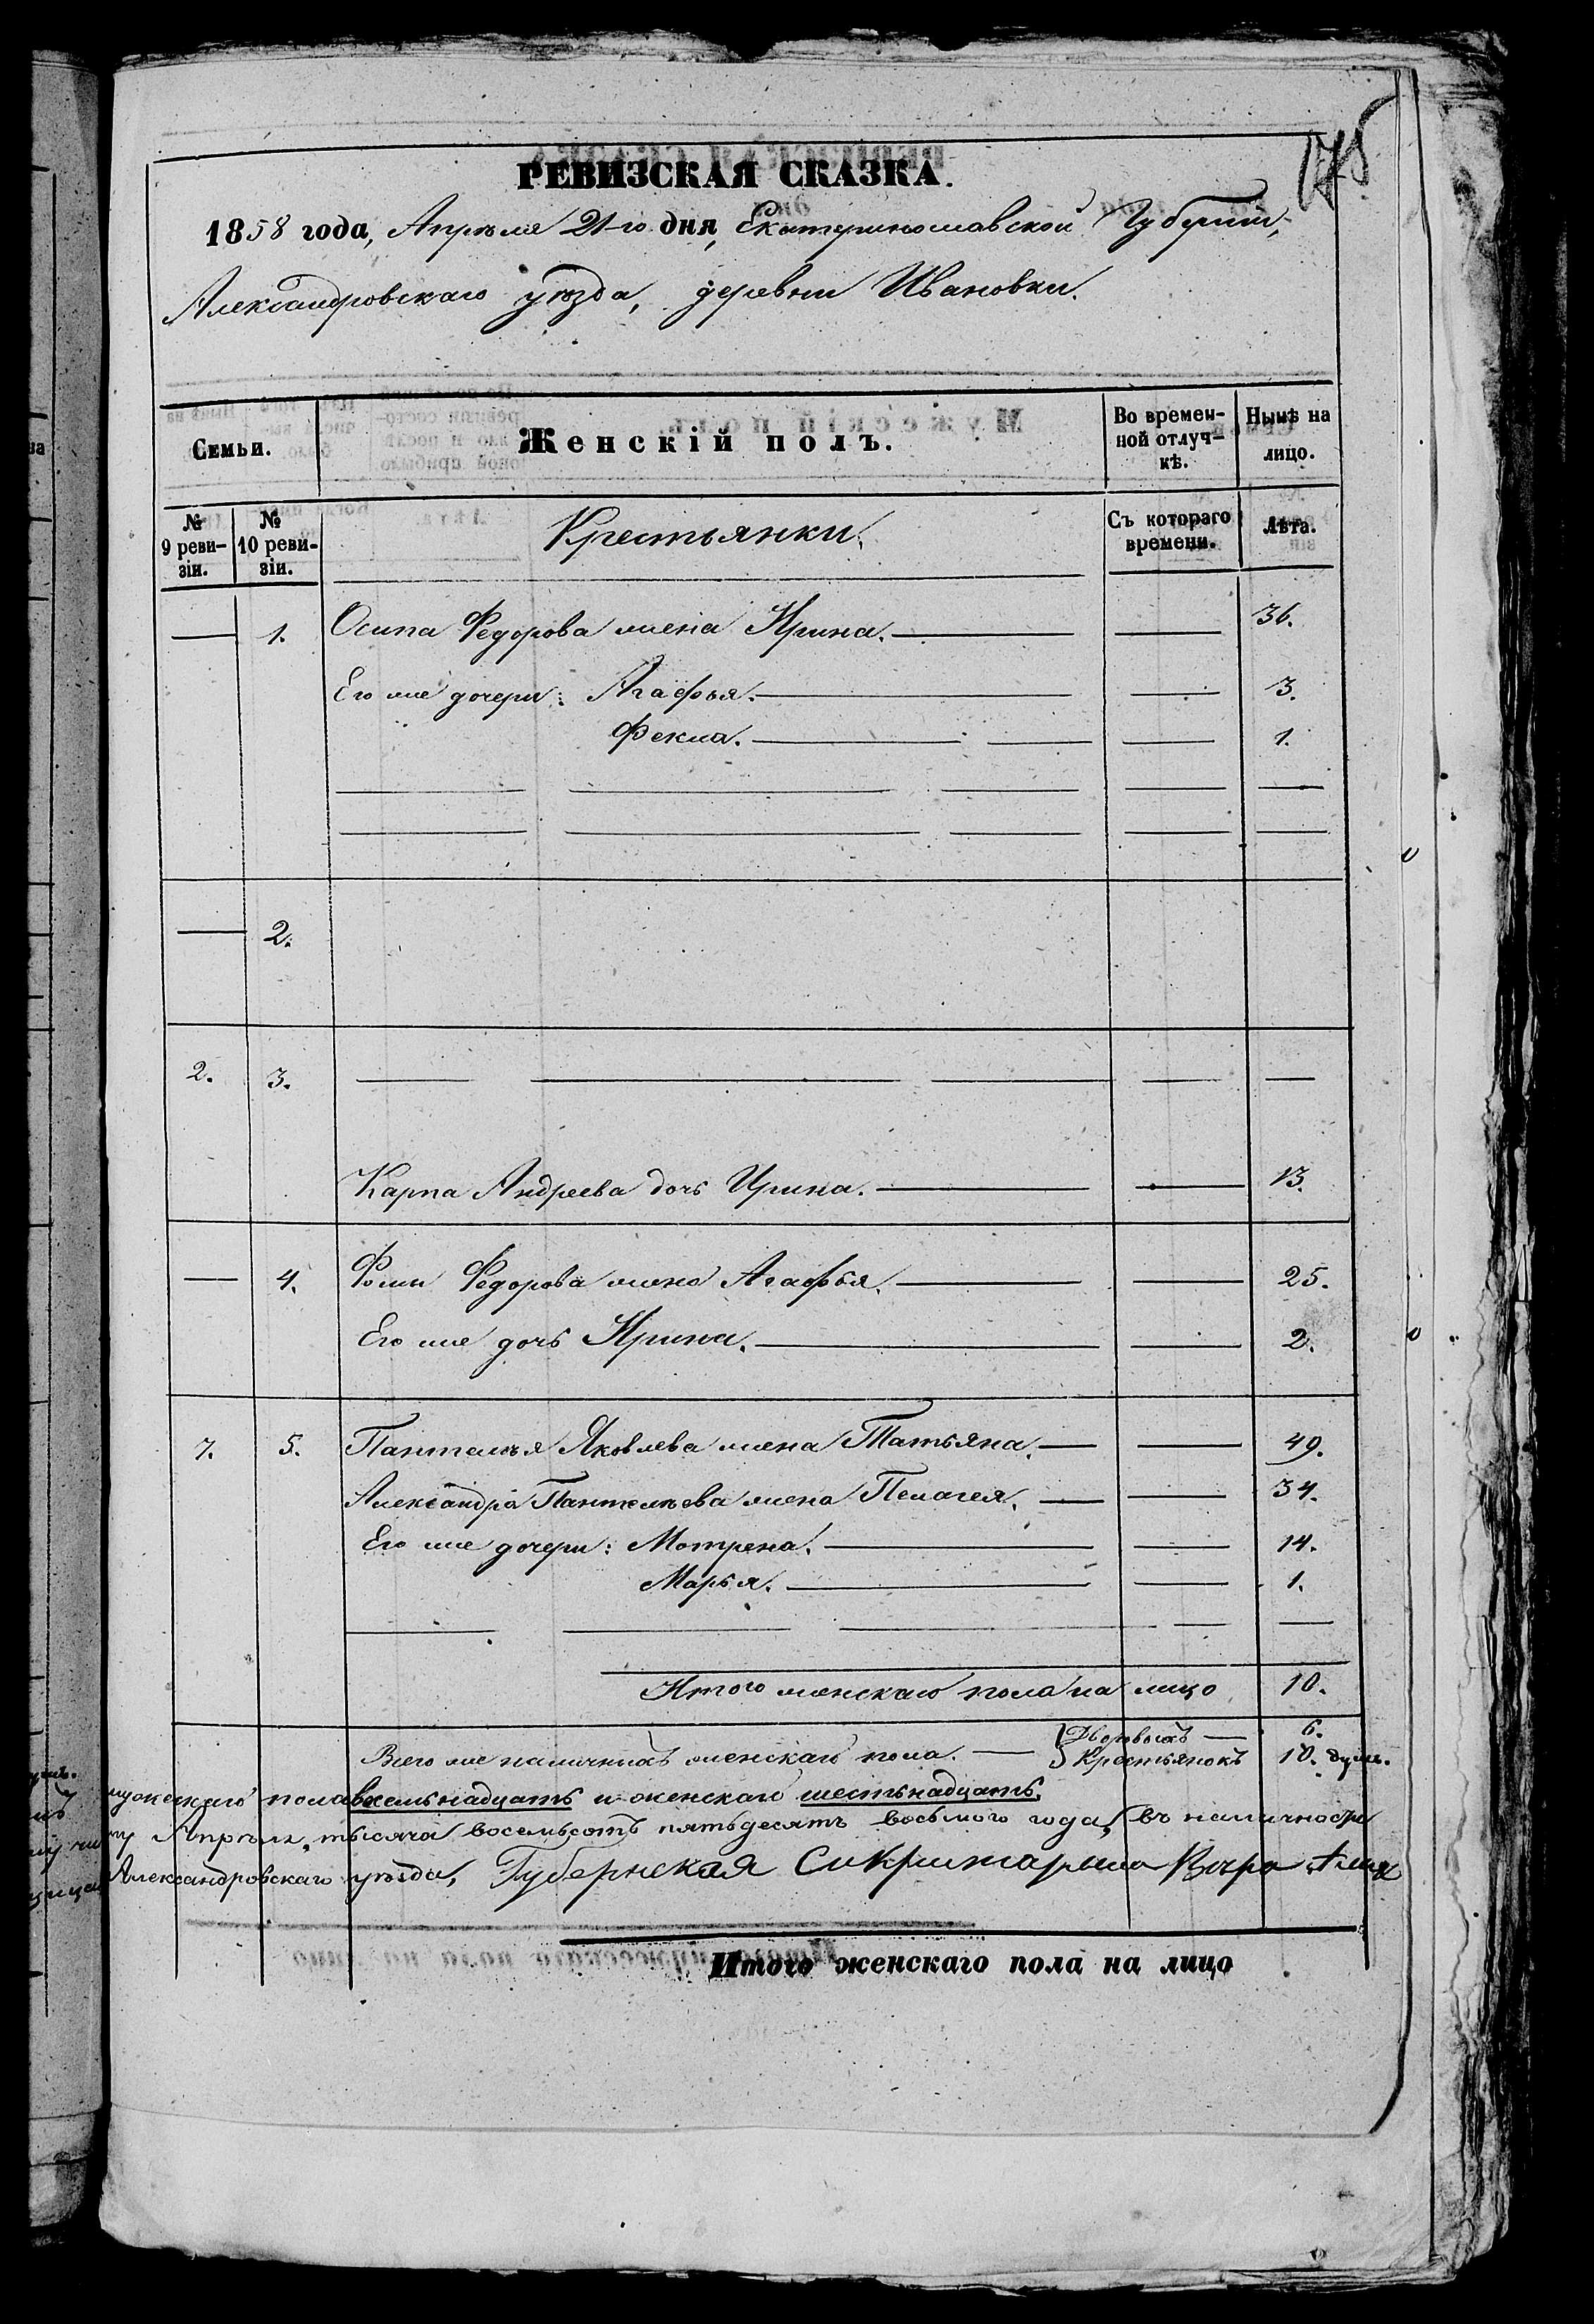 175
РЕВИЗСКАЯ СКАЗКА.
1858 года, Апрѣля 21-го дня, Екатеринославской Губерніи,
Александровскаго уѣзда, деревни Ивановки.
Семьи.
Женскій полъ.
Во времен-
ной отлуч-
кѣ.
Нынѣ на
лицо.
№
9 реви-
зіи.
№
10 реви-
зіи.
Крестьянки.
Съ котораго
времени.
Лѣта.
1. Осипа Федорова жена Ирина. 36.
Его же дочери: Агафья. 3.
Фекла. 1.
2.
2. 3.
Карпа Андреева дочь Ирина. 13.
4. Фомы Федорова жена Агафья. 25.
Его же дочь Ирина. 2.
7. 5. Пантелѣя Яковлева жена Татьяна. 49.
Александра Пантелѣева жена Пелагея. 34.
Его же дочери: Мотрена. 14.
Марья. 1.
Итого женскаго пола на лицо 10.
Всего же наличныхъ женскаго пола. Дворовыхъ 6.
Крестьянокъ 10. душъ.
мужескаго пола восемьнадцать и женскаго шестьнадцать.
Апрѣля, тысяча восемьсотъ пятьдесятъ восьмого года, въ наличности
Александровскаго уѣзда, Губернская Сикритарша
Итого женскаго пола на лицо